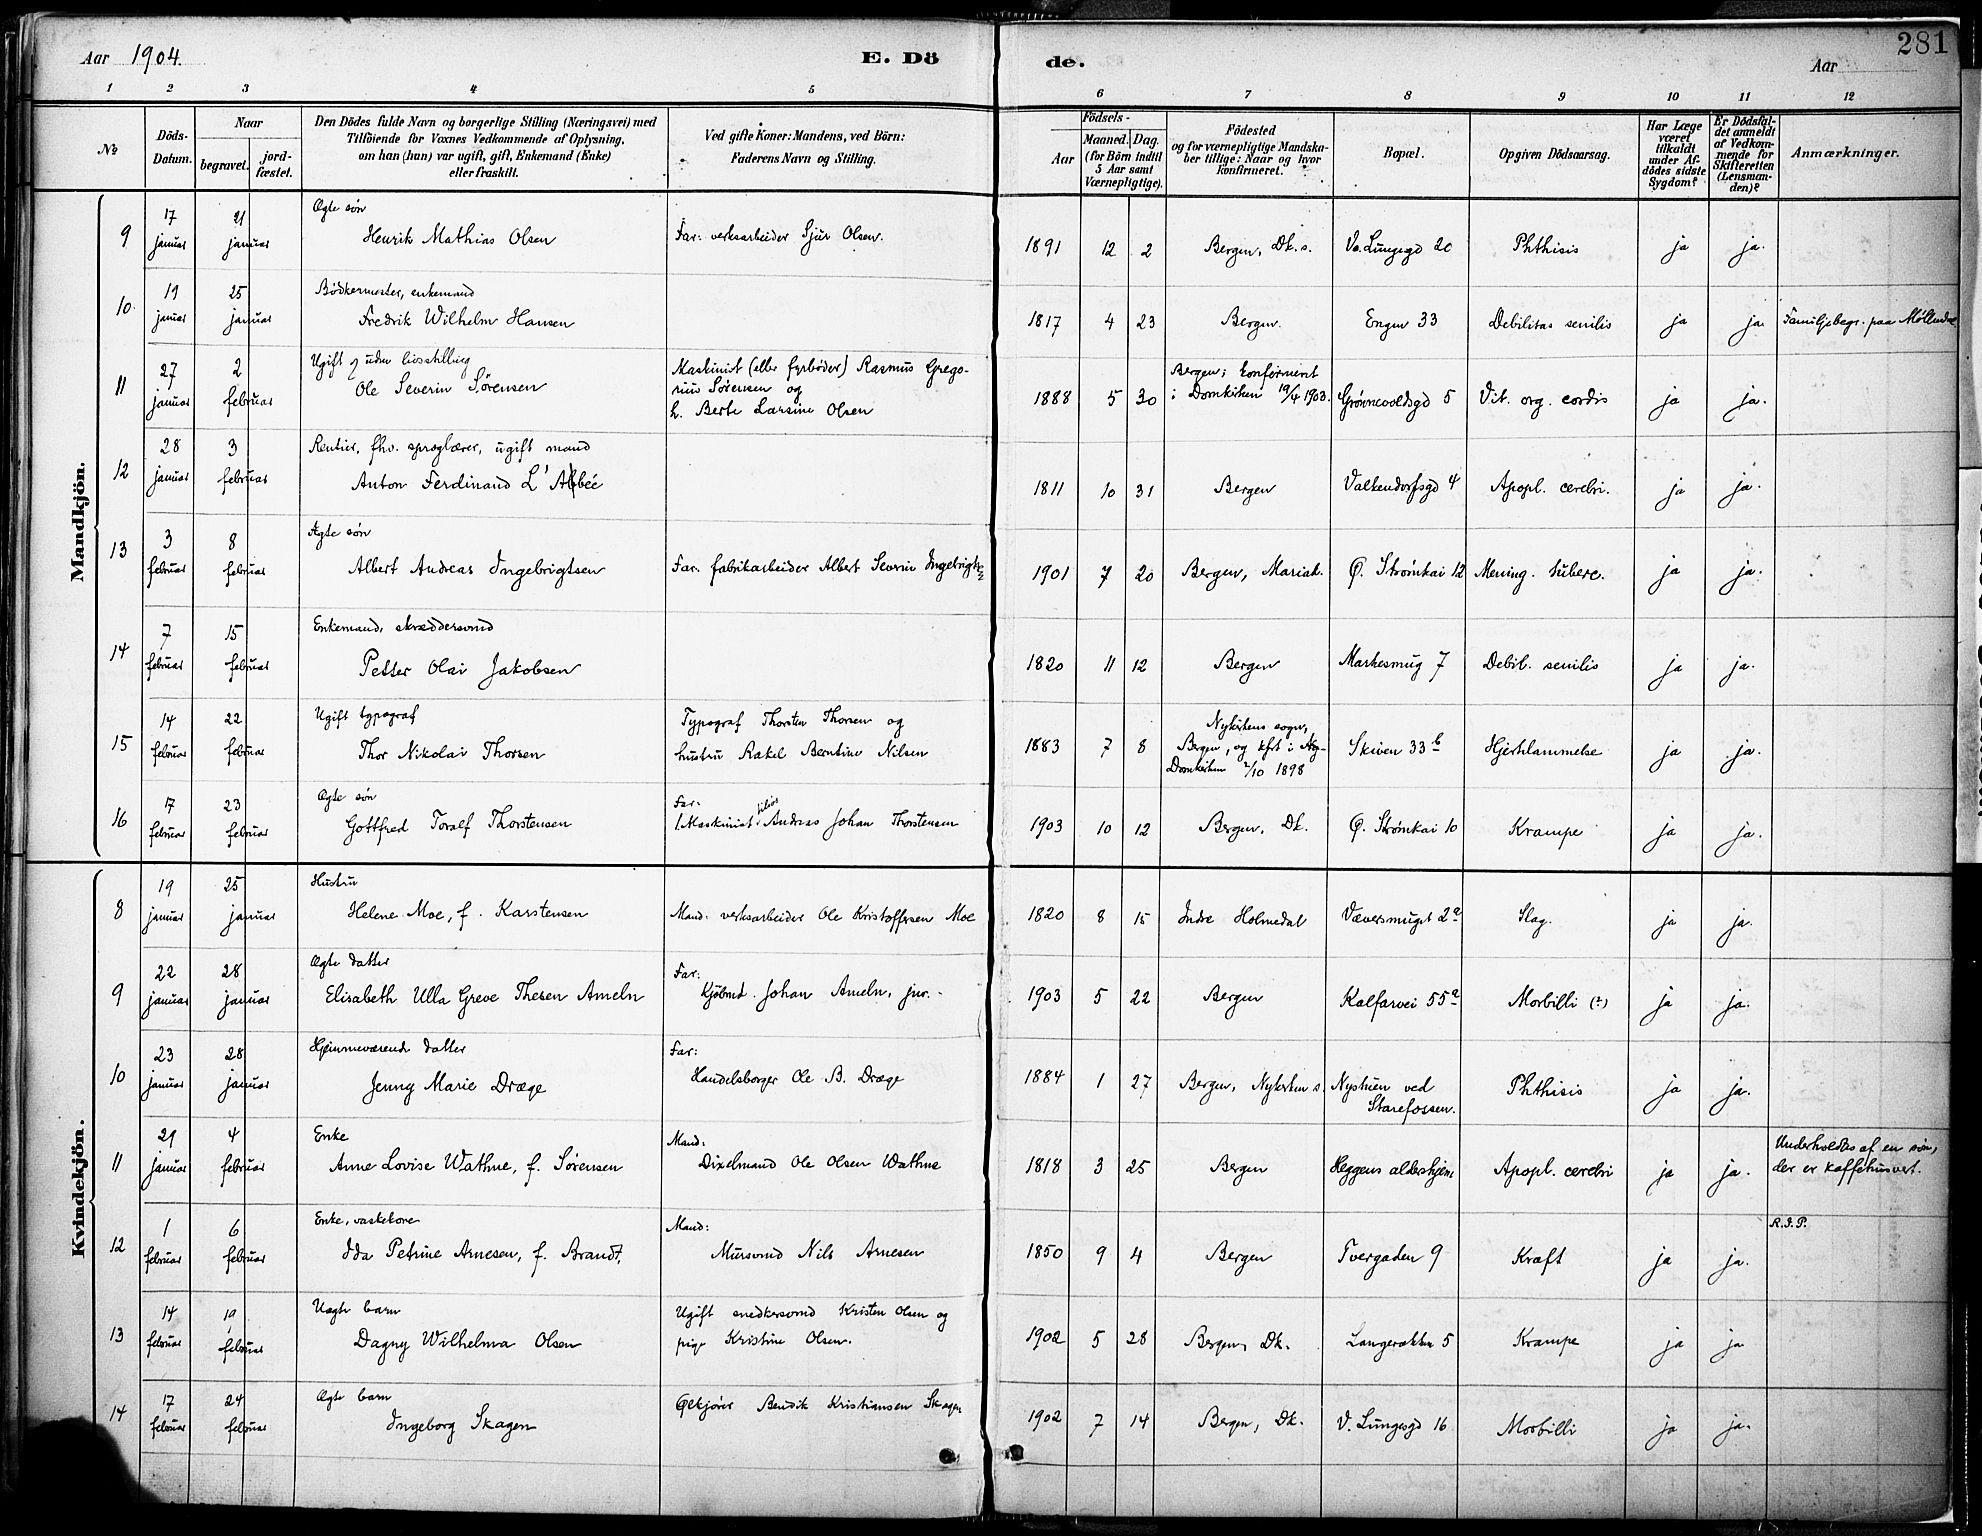 281
Aar 1904.
E. Dö
de.
Aar
1 2 3 4 5 6 7 8 9 10 11 12
No
Döds-
Datum.
Naar
begravet.
jord-
fæstet.
Den Dödes fulde Navn og borgerlige Stilling (Næringsvei) med
Tilföiende for Voxnes Vedkommende af Oplysning,
om han (hun) var ugift, gift, Enkemand (Enke)
eller fraskilt.
Ved gifte Koner: Mandens, ved Börn:
Faderens Navn og Stilling.
Födsels-
Aar
Maaned. Dag.
(for Börn indtil
5 Aar samt
Værnepligtige).
Födested
og for værnepligtige Mandska-
ber tillige: Naar og hvor
konfirmeret.
Bopæl.
Opgiven Dödsaarsag.
Har Læge
været
tilkaldt
under Af-
dödes sidste
Sygdom?
Er Dödsfal-
det anmeldt
af Vedkom-
mende for
Skifteretten
(Lensman-
den)?
Anmærkninger.
Mandkjön.
9 17 januar 21 januar
Ægte søn
Henrik Mathias Olsen
Far: verksarbeider Sjur Olsen.
1891 12 2 Bergen, Dk. s. Ve. Lungegd 20 Phthisis ja ja.
10. 19 januar 25 januar
Bødkermester, enkemand
Fredrik Wilhelm Hansen
1817 4 23 Bergen. Engen 33 Debilitas senilis ja ja. Familjebegr. paa Møllendal
11 27 januar 2 februar
Ugift og uden livsstilling
Ole Severin Sørensen
Maskinist (eller fyrbøder) Rasmus Grego-
rius Sørensen og
h. Berte Larsine Olsen
1888 5 30
Bergen; konfirmert
i Domkirken 19/4 1903.
Grønnevoldsgd 5 Vit. org. cordis ja ja.
12 28 januar 3 februar
Rentier, fhv. sproglærer, ugift mand
Anton Ferdinand L'Abbée
1811 10 31 Bergen Valkendorfsgd 4 Apopl. cerebri. ja ja.
13 3 februar 8 februar
Ægte søn
Albert Andreas Ingebrigtsen
Far. fabrikarbeider Albert Severin Ingebrigtsen
1901 7 20 Bergen, Mariak. Ø. Strømkai 12 Mening. tuberc. ja ja.
14 7 februar 15 februar
Enkemand, skræddersvend
Petter Olai Jakobsen
1820 11 12 Bergen Markesmug 7 Debil. senilis ja ja.
15 14 februar 22 februar
Ugift typograf
Thor Nikolai Thorsen
Typograf Thorsten Thorsen og
hustru Rakel Berntine Nilsen
1883 7 8
Nykirkens sogn,
Bergen, og kft i Ny-
Domkirken 2/10 1898
Skiven 33 b Hjertelammelse ja ja.
16 17 februar 23 februar
Ægte søn
Gottfred Toralf Thorstensen
Far:
Maskinist Andreas Johan Thorstensen
1903 10 12 Bergen, Dk. Ø. Strømkai 10 Krampe ja ja.
Kvindekjön.
8 19 januar 25 januar
Hustru
Helene Moe, f. Karstensen
Mand: verksarbeider Ole Kristoffersen Moe
1820 8 15 Indre Holmedal Væversmuget 2 a Slag. ja ja.
9 22 januar 28 januar
Ægte datter
Elisabeth Ulla Greve Thesen Ameln
Far:
Kjøbmd. Johan Ameln, jnr.
1903 5 22 Bergen Kalfarvei 55 a Morbilli (?) ja ja.
10 23 januar 28 januar
Hjemmeværende datter
Jenny Marie Dræge
Far:
Handelsborger Ole B. Dræge
1884 1 27 Bergen, Nykirken s. Nystuen ved
Starefossen.
Phthisis ja ja.
11 29 januar 4 februar
Enke
Anne Lovise Wathne, f. Sørensen
Mand:
Dixelmand Ole Olsen Wathne
1818 3 25 Bergen Heggens alderhjem Apopl. cerebri ja ja.
Underholdes af en søn,
der er kaffehusvert.
12 1 februar 6 februar
Enke, vaskekone
Ida Petrine Arnesen, f. Brandt,
Mand:
Mursvend Nils Arnesen
1850 9 4 Bergen Tvergaden 9 Kræft ja ja.
R.I.P.
13 14 februar 19 februar
Uægte barn
Dagny Wilhelma Olsen
Ugift snedkersvend Kristen Olsen og
pige Kristine Olsen.
1902 5 28 Bergen, Dk. Langerækken 5 Krampe ja ja
14 17 februar 24 februar
Ægte barn
Ingeborg Skagen
Ølkjører Bendik Kristiansen Skagen
1902 7 14 Bergen, Dk. V. Lungegd 16 Morbilli ja ja.